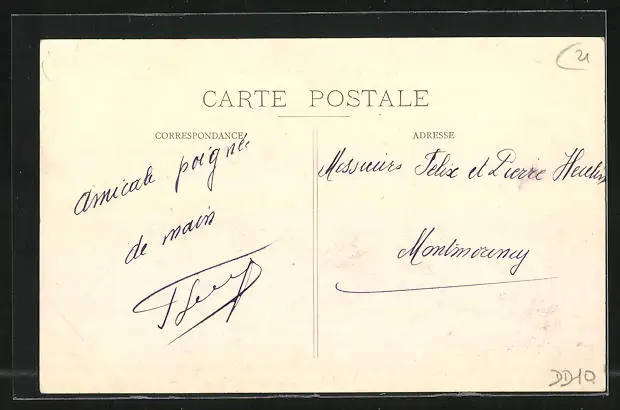 21
CARTE POSTALE
CORRESPONDANCE
amicale poignée
de main
ADRESSE
Messieurs Félix et Pierre
Montmorency
DD10